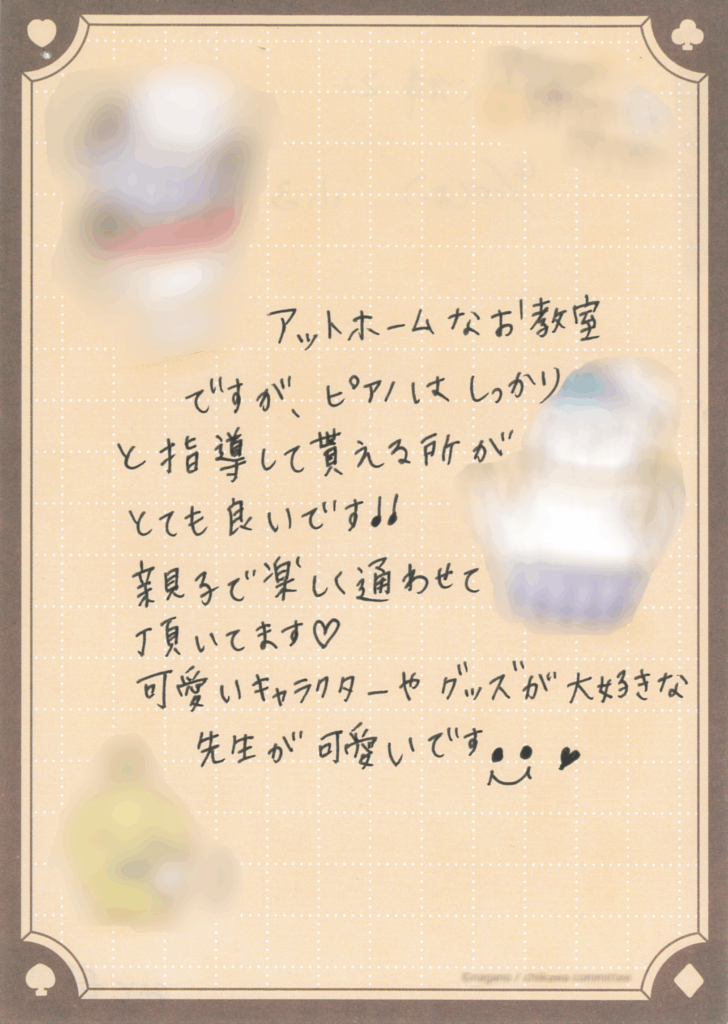 アットホームなお教室
ですが、ピアノはしっかり
と指導して貰える所が
とても良いです♩♩
親子で楽しく通わせて
頂いてます♡
可愛いキャラクターやグッズが大好きな
先生が可愛いです